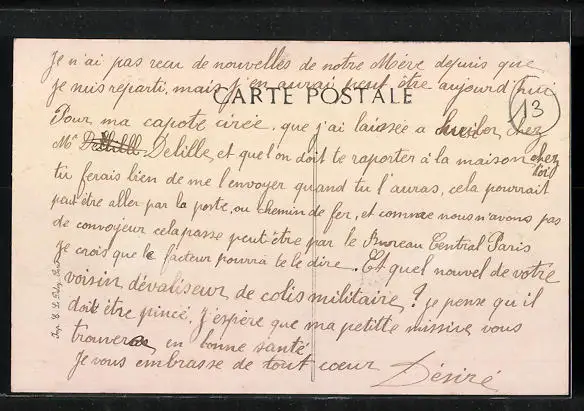 Je n'ai pas recu de nouvelles de notre Mère depuis que
je suis reparti, mais j'en aurai peut être aujourd'hui
CARTE POSTALE
13
Pour ma capote cirée, que j'ai laissée a chez
Mr Delille, et que l'on doit te raporter à la maison chez toi
tu ferais bien de me l'envoyer quand tu l'auras, cela pourrait
peut être aller par la poste, ou chemin de fer, et comme nous n'avons pas
de convoyeur cela passe peut-être par le Bureau Central Paris
je crois que le facteur pourra te le dire. Et quel nouvel de votre
voisin dévaliseur de colis militaire? je pense qu'il
doit être pincé. J'espère que ma petite missive vous
trouvera en bonne santé
Je vous embrasse de tout coeur Désiré